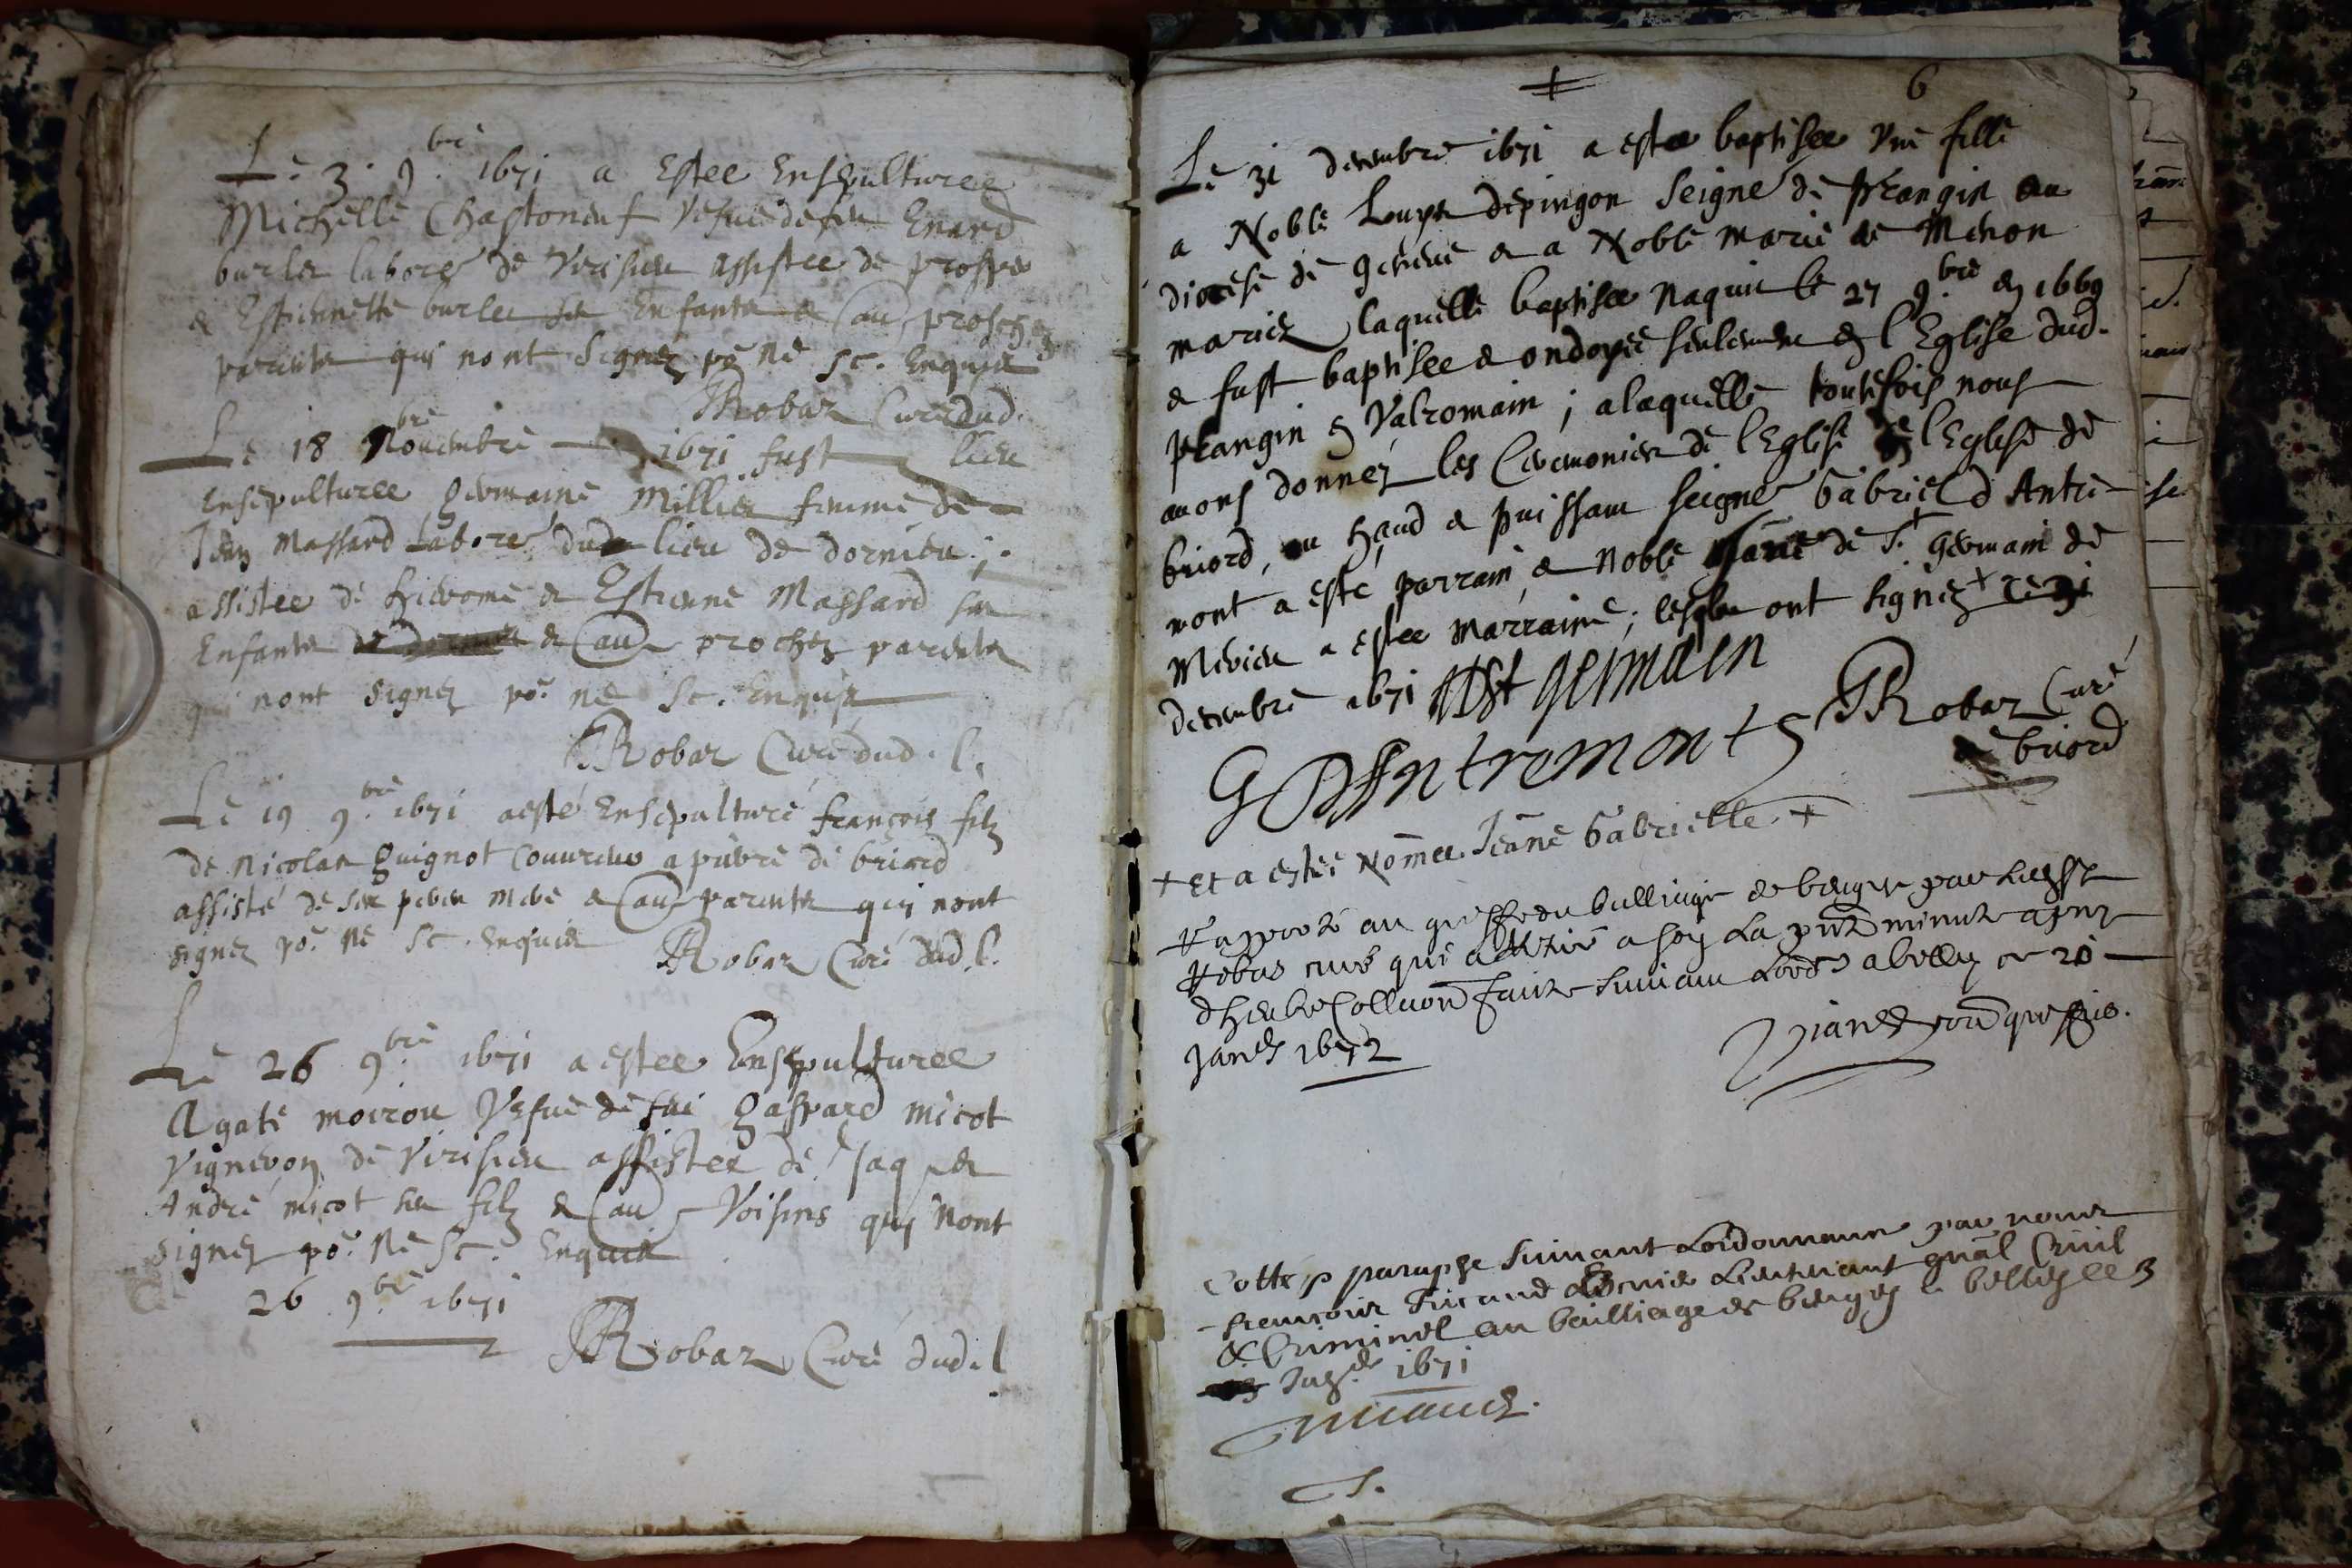 Le 3. 9.bre 1671 a Estee Ensepulturee
Michelle Chastoneuf vefue de feu Enard
burlet labore.r de Virisieu assistee de prospe
& Estiennette burlet ses Enfants & au. proschez
parents qui nont signez po.r ne sc. Enquis
Robaz Curé dud.
Le 18 Nouembre 1671 fust
lieu
Ensepulturee germaine Millier femme de
Jean Massard Labore.r dud. lieu de dornieu ;.
assistee de hierome & Estienne Massard ses
Enfants & au. prochez parents
qui nont signez po.r ne sc. Enquis
Robaz Curé dud. l.
Le 19 9.bre 1671 a esté Ensepulturé françois filz
de Nicolas Guignot couureur a de briord
assisté de ses peres mere & au. parents qui nont
signez po.r ne sc. Enquis Robaz Curé dud. l.
Le 26 9.bre 1671 a estee Ensepulturee
Agate moirou Vefue de feu gaspard micot
Vigneron de Virisieu assistee de Jaques
André micot ses filz & au. Voisins qui nont
signez po.r ne sc. Enquis
Le 26 9.bre 1671
Robaz Curé dud. l
6
Le 31 decembre 1671 a estee baptisee Vne fille
a Noble Louys depingon Seigne.r de prangin au
diocese de geneue & a Noble marie de Menon
mariez laquelle baptisee Naquit le 27 9.bre en 1669
& fust baptisee & ondoyée seulement en l'Eglise dud.
prangin en Valromain ; a laquelle toutefois nous
auons donnez les Ceremonies de l'Eglise en l'Eglise de
briord, ou haud & puissant seigne.r Gabriel d Antre-
mont a esté parrain & Noble Jane de S.t Germain de
Merieu a estee marraine ; lesqls ont signez + ce 31
decembre 1671 St germain
G DAntremont Robaz Curé
de briord
+ Et a estée Nomée Jeane Gabrielle +
Raporté au greffe du balliage de beugey par messe
Robas curé qui a retiré a soy La pnte minute apres
dheube Collaon faite suiuant Lord.e a belley ce 20
Janer 1672
Cotté & paraphe suiuant Lordonnance par nous
françois Escuier Lieutenant gnal Ciuil
& Criminel au bailliage de beugey a belley le 3
1671